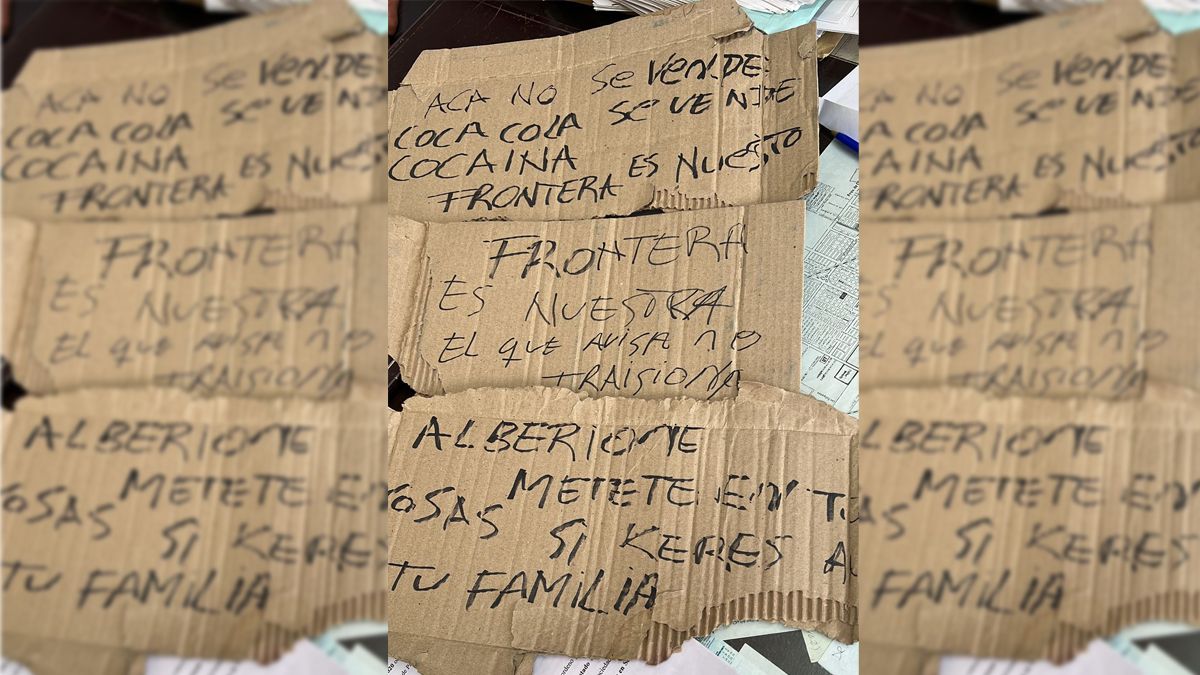 ACA NO Se VENDE
COCA COLA Se VENDE
COCAINA ES NUESTO
FRONTERA
FRONTERA
ES NUESTRA
EL QUE AVISA NO
TRAISIONA
ALBERIONE
METETE EN T
OSAS SI KERES A
TU FAMILIA